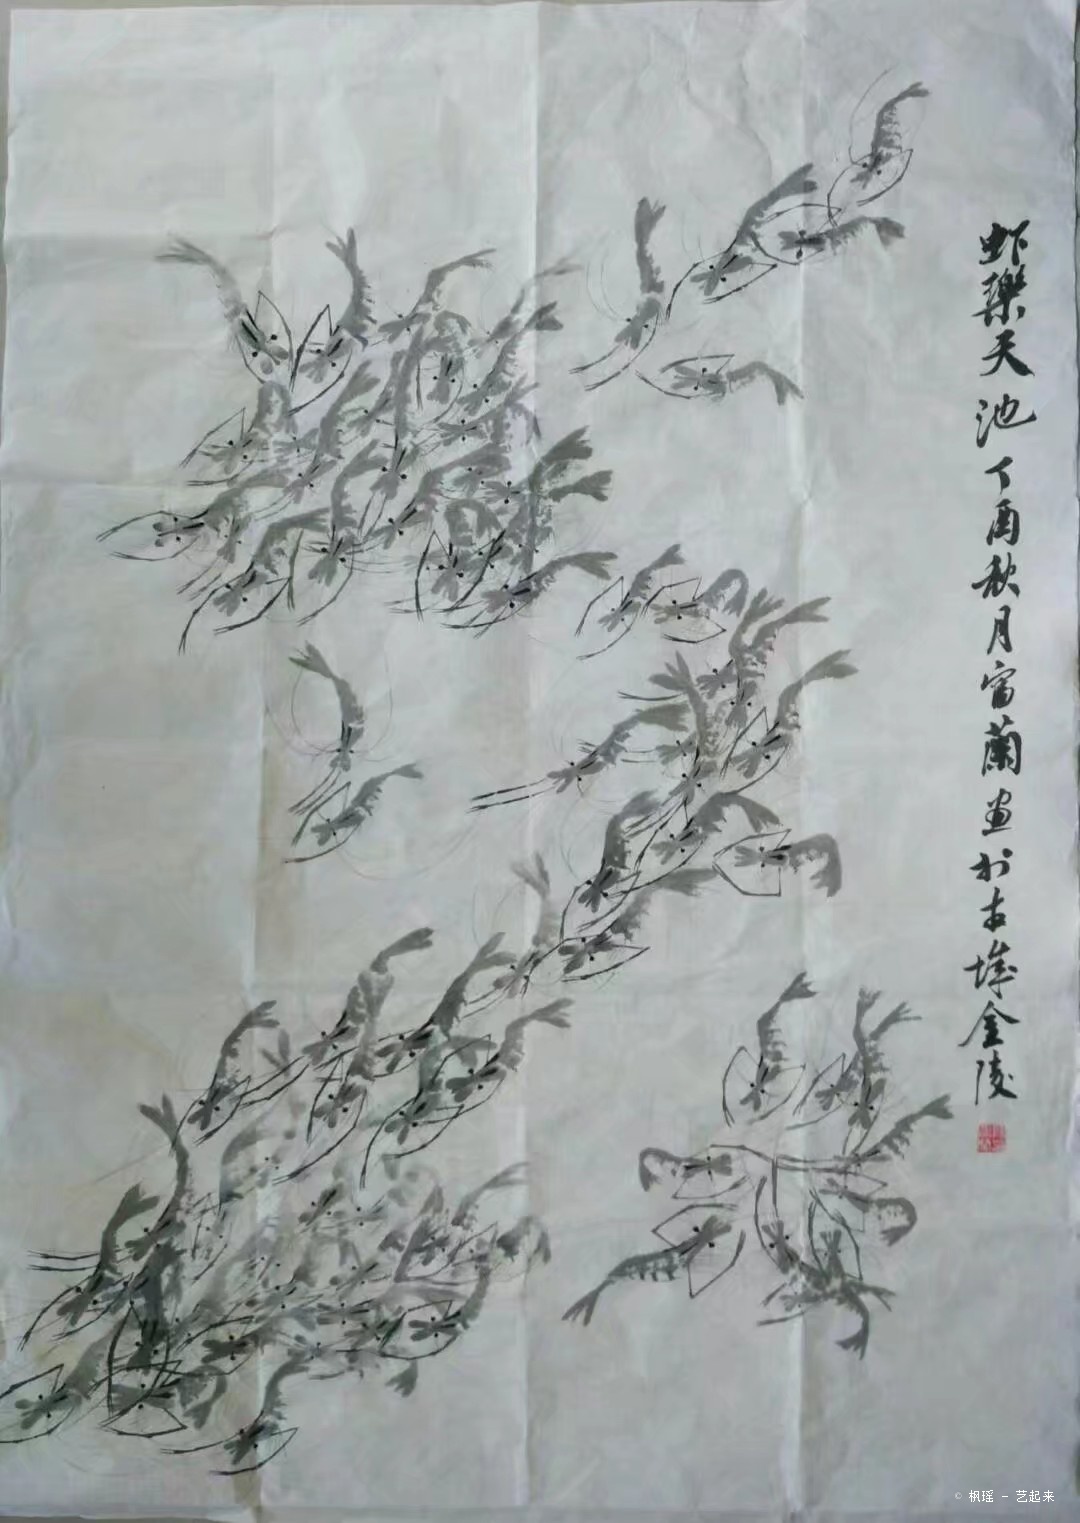 虾乐天池丁酉秋月富蘭画于古城金陵
© 枫瑶 - 艺起来